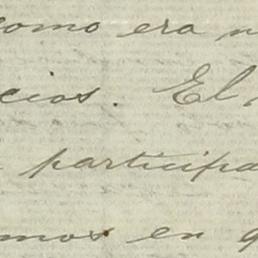 como era
cios. El
participa
mos en